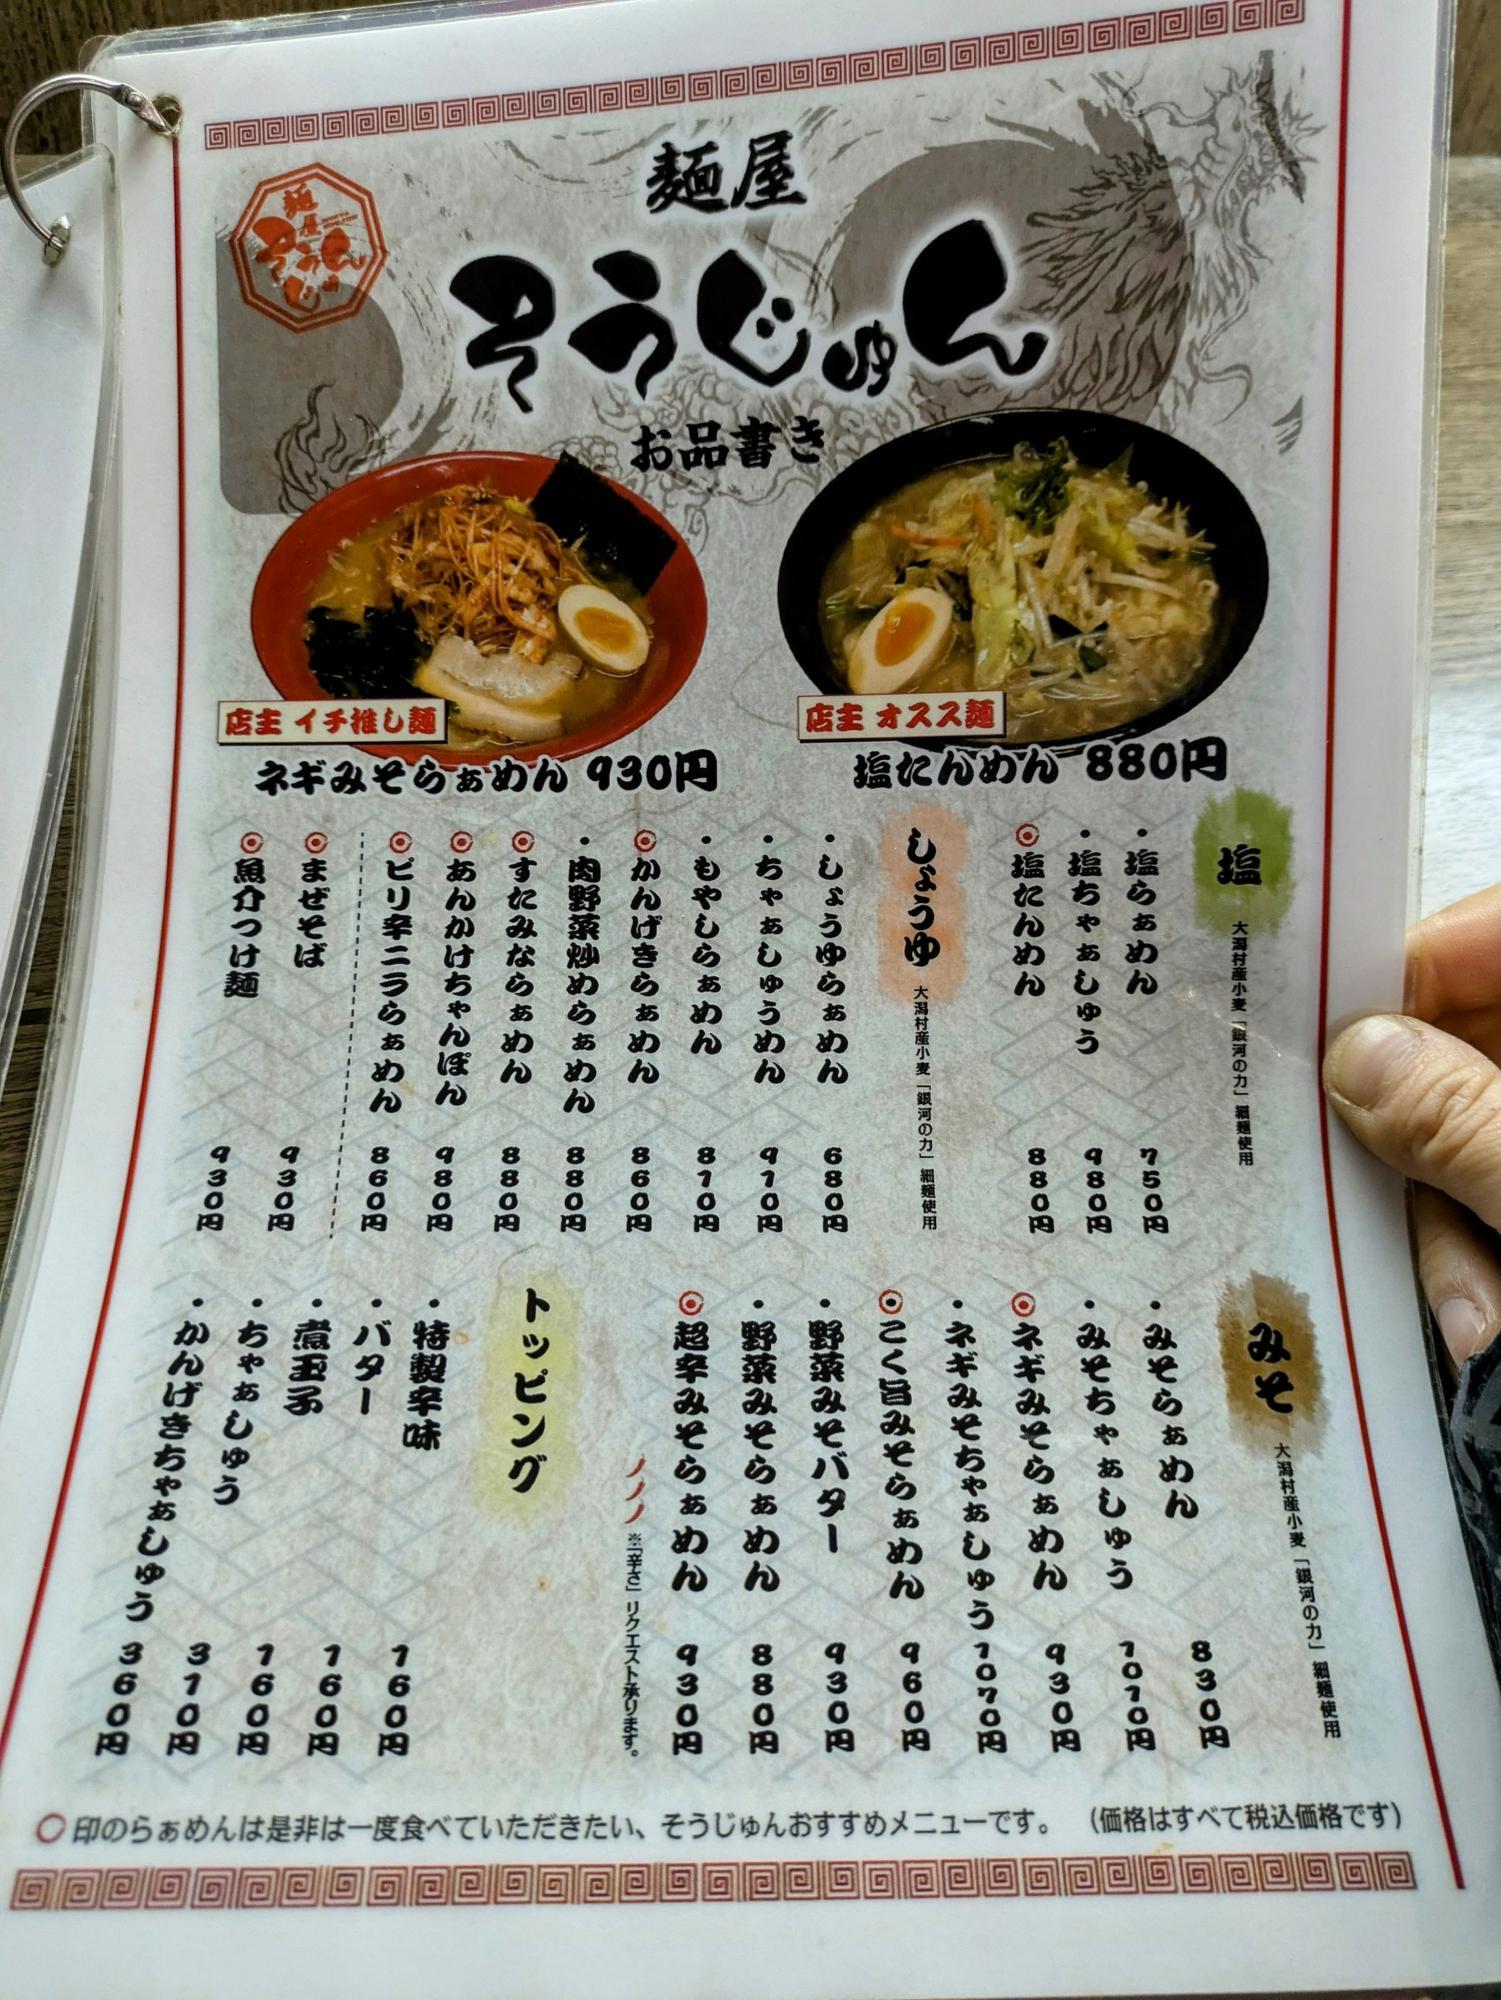 麺屋
そうじゅん
麺屋
そうじゅん
お品書き
店主 イチ推し麺
ネギみそらぁめん 930円
店主 オススメ麺
塩たんめん 880円
塩
大潟村産小麦「銀河の力」細麺使用
・塩らぁめん 750円
・塩ちゃぁしゅう 980円
◎塩たんめん 880円
しょうゆ
大潟村産小麦「銀河の力」細麺使用
・しょうゆらぁめん 680円
・ちゃぁしゅうめん 910円
・もやしらぁめん 810円
◎かんげきらぁめん 860円
・肉野菜炒めらぁめん 880円
◎すたみならぁめん 880円
◎あんかけちゃんぽん 980円
◎ピリ辛ニララぁめん 860円
◎まぜそば 930円
◎魚介つけ麺 930円
みそ
大潟村産小麦「銀河の力」細麺使用
・みそらぁめん 830円
・みそちゃぁしゅう 1010円
◎ネギみそらぁめん 930円
・ネギみそちゃぁしゅう 1070円
◎こく旨みそらぁめん 960円
・野菜みそバター 930円
・野菜みそらぁめん 880円
◎超辛みそらぁめん 930円
※「辛さ」リクエスト承ります。
トッピング
・特製辛味 160円
・バター 160円
・煮玉子 160円
・ちゃぁしゅう 310円
・かんげきちゃぁしゅう 360円
○印のらぁめんは是非は一度食べていただきたい、そうじゅんおすすめメニューです。 (価格はすべて税込価格です)